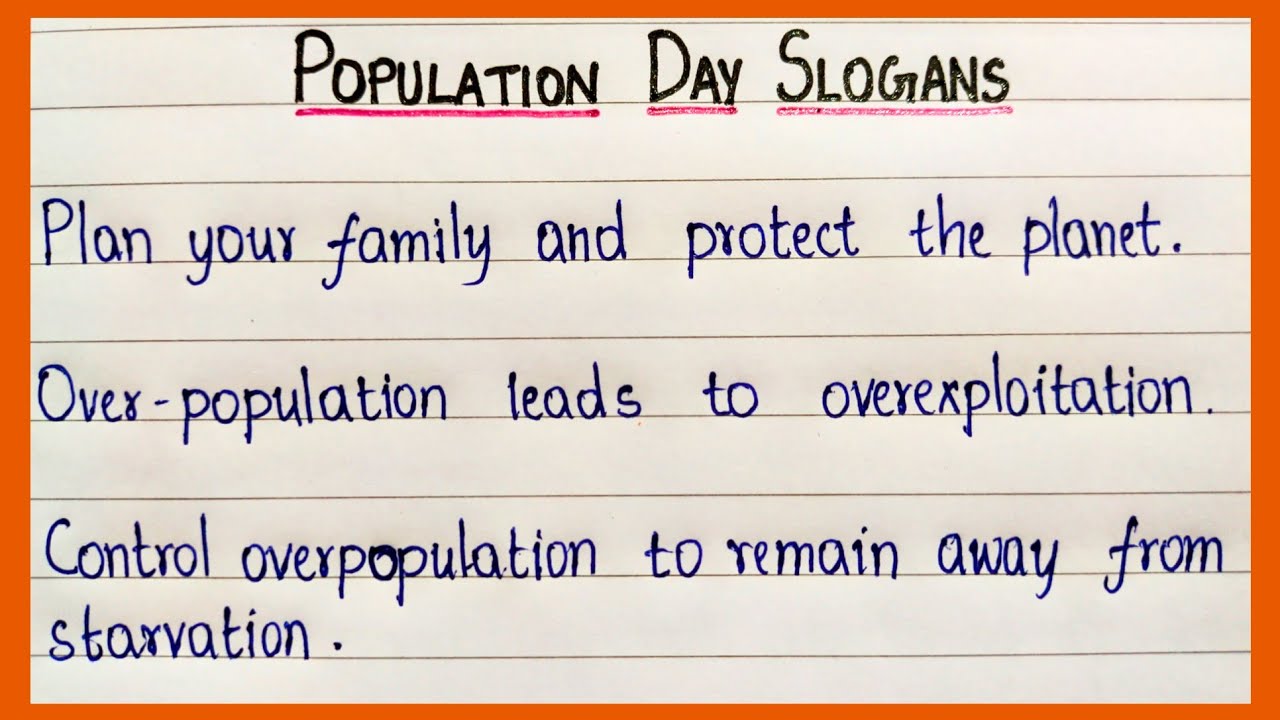 POPULATION DAY SLOGANS
Plan your family and protect the planet.
Over-population leads to overexploitation.
Control overpopulation to remain away from
starvation.